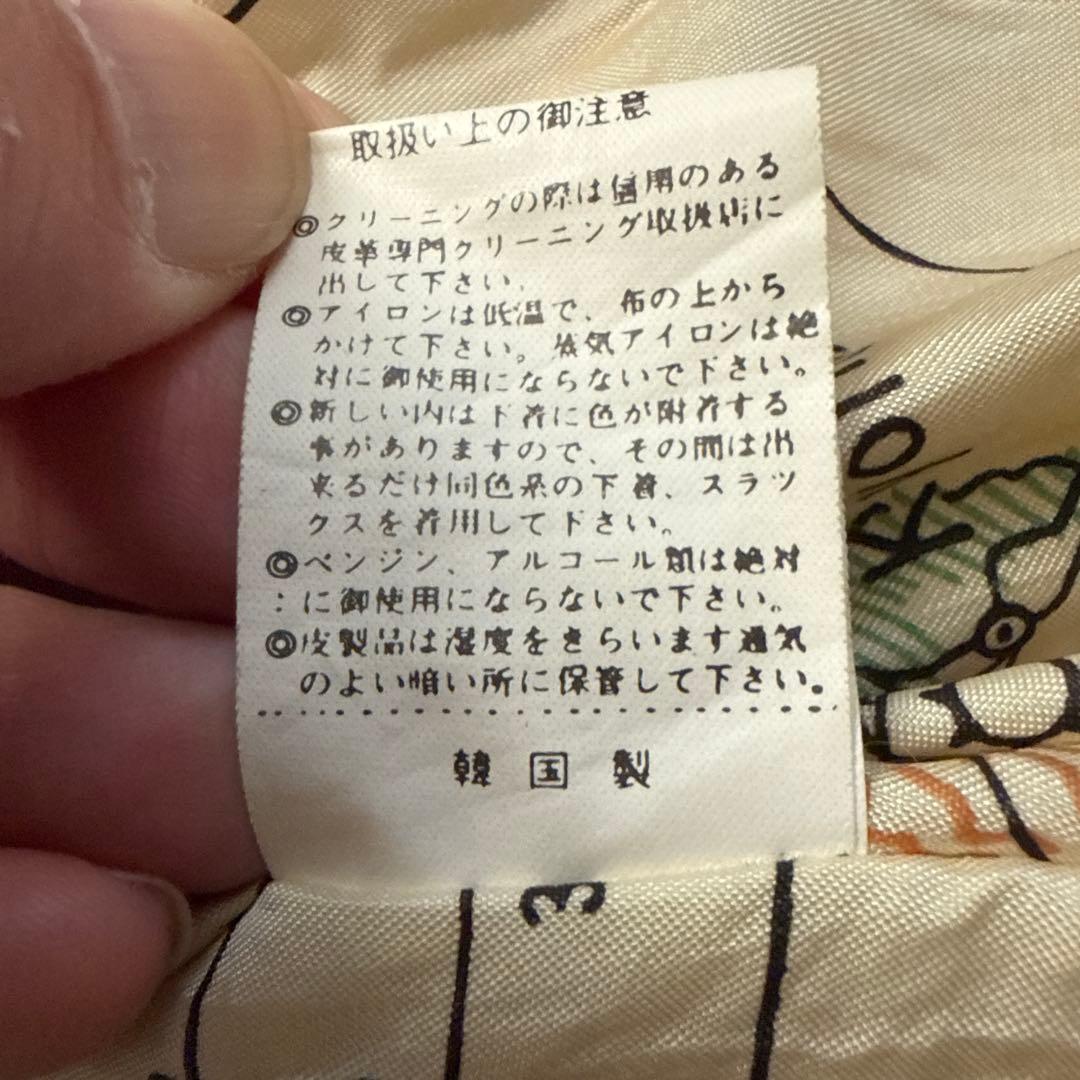 取扱い上の御注意
◎クリーニングの際は信用のある
皮革専門クリーニング取扱店に
出して下さい.
◎アイロンは低温で、布の上から
かけて下さい。蒸気アイロンは絶
対に御使用にならないで下さい。
◎新しい内は下着に色が附着する
事がありますので、その間は出
来るだけ同色系の下着、スラッ
クスを着用して下さい。
◎ベンジン、アルコール類は絶対
:に御使用にならないで下さい。
◎皮製品は湿度をきらいます通気
のよい暗い所に保管して下さい。
韓国製
3